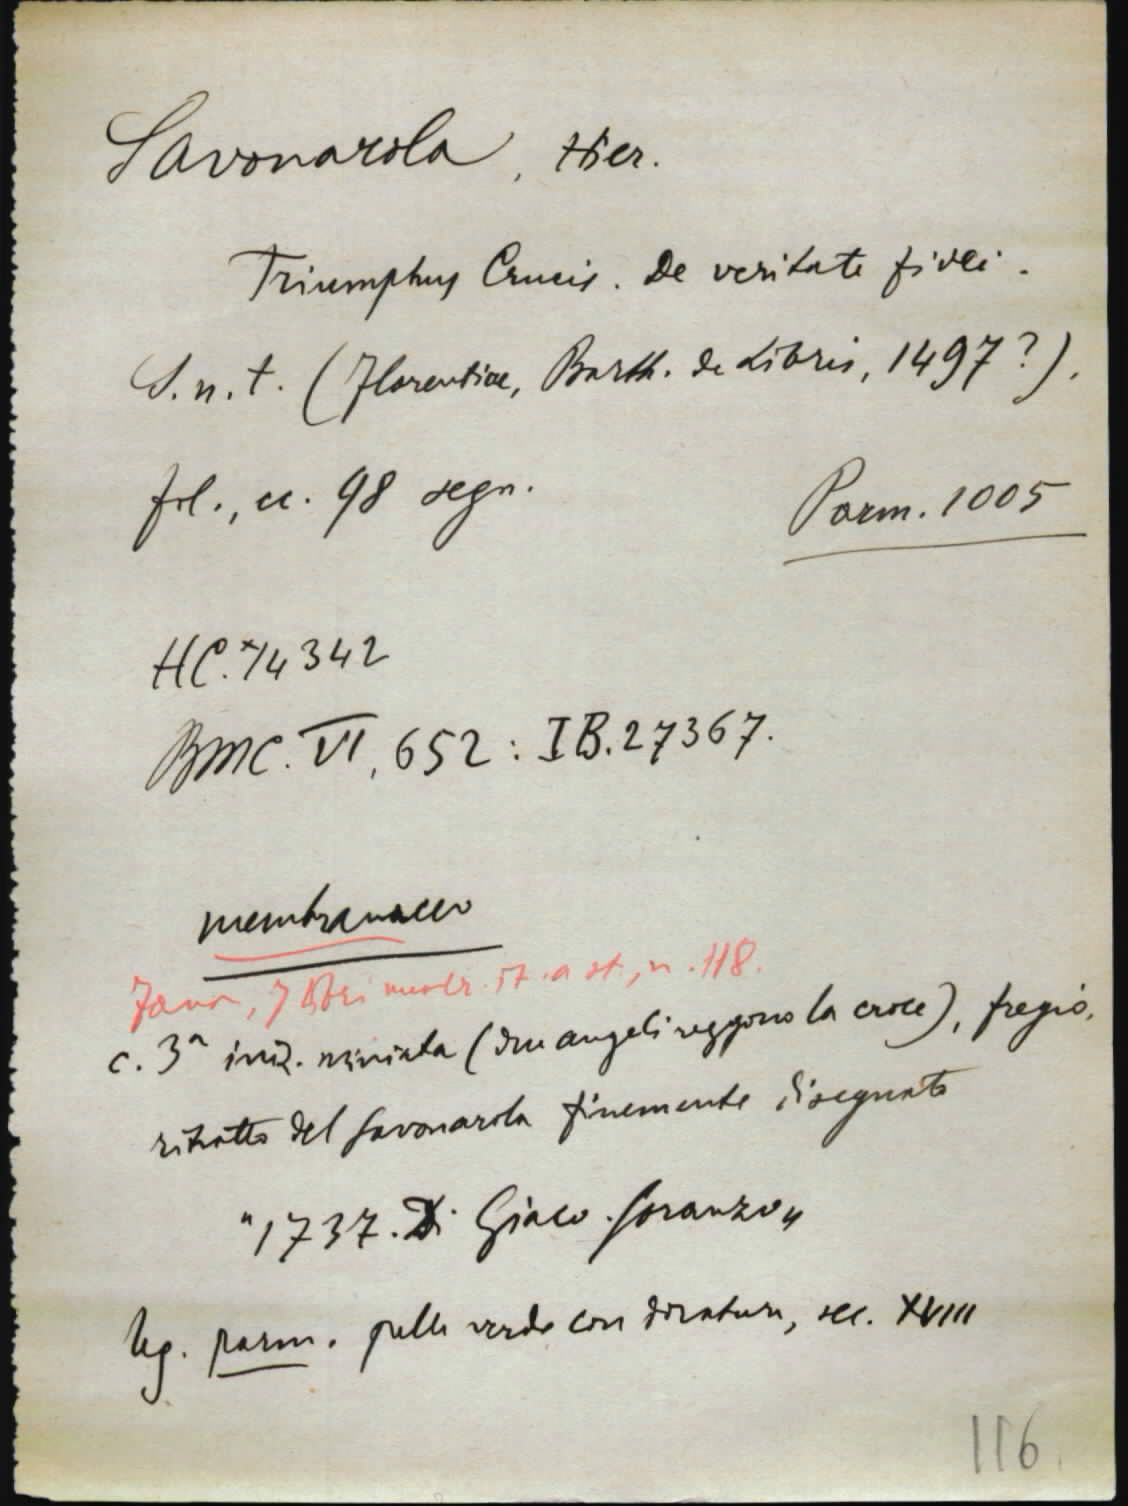 Savonarola, Hier.
Triumphus Crucis. De veritate fidei.
S.n.t. (Florentiae, Barth. de Libris, 1497?).
fol., cc. 98 segn.
Parm. 1005
HC.*14342
BMC. VI, 652 : IB.27367.
membranaceo
n. 118.
c. 3ª iniz. miniata (due angeli reggono la croce), fregio,
ritratto del Savonarola finemente disegnato
"1737. Di Giaco. Soranzo"
leg. parm. pelle verde con dorature, sec. XVIII
116